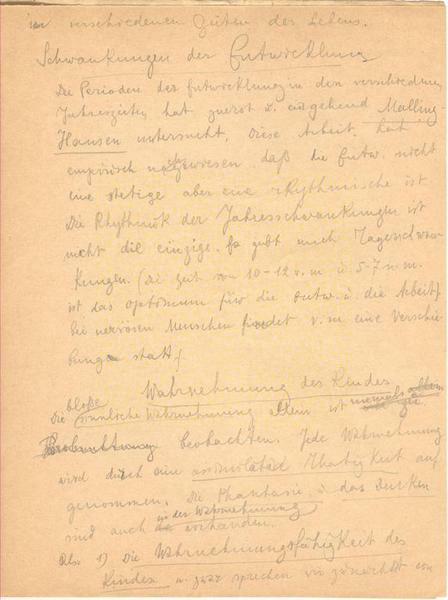 in verschiedenen Zeiten des Lebens.
Schwankungen der Entwicklung
Die Perioden der Entwicklung in den verschiednen
Jahreszeiten hat zuerst u. eingehend Malling
Hansen untersucht. Diese Arbeit hat
empirisch nachgewiesen daß die Entw. nicht
eine stetige aber eine rhythmische ist
Die Rhythmik der Jahresschwankungen ist
nicht die einzige. Es gibt auch Tagesschwan
kungen. (Die Zeit von 10-12 v.m u. 5-7 n.m.
ist das optimum für die Entw. u. die Arbeit)
Bei nervösen Menschen findet v.m eine Verschie
bung statt.
Wahrnehmung des Kindes
Die bloße sinnliche Wahrnehmung allein ist niemals
Beobachtung beobachten. Jede Wahrnehmung
wird durch eine Thätigkeit auf
genommen. Die Phantasie u. das Denken
sind auch in der Wahrnehmung vorhanden.
Also 1) Die Wahrnehmungsfähigkeit des
Kindes u. zwar sprechen wir zunächst von